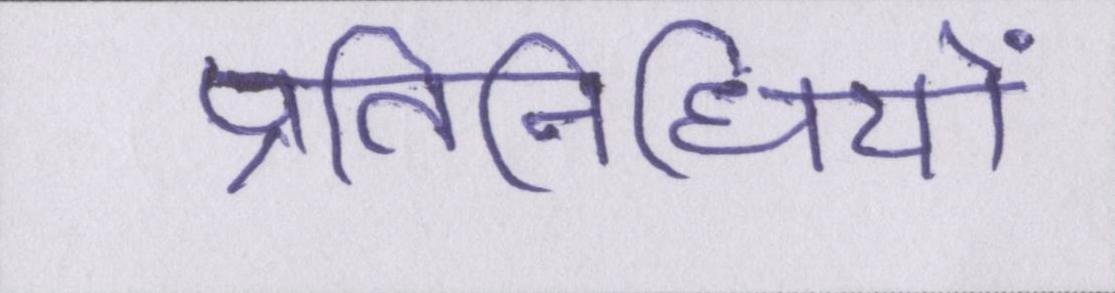 प्रतिनिधियों